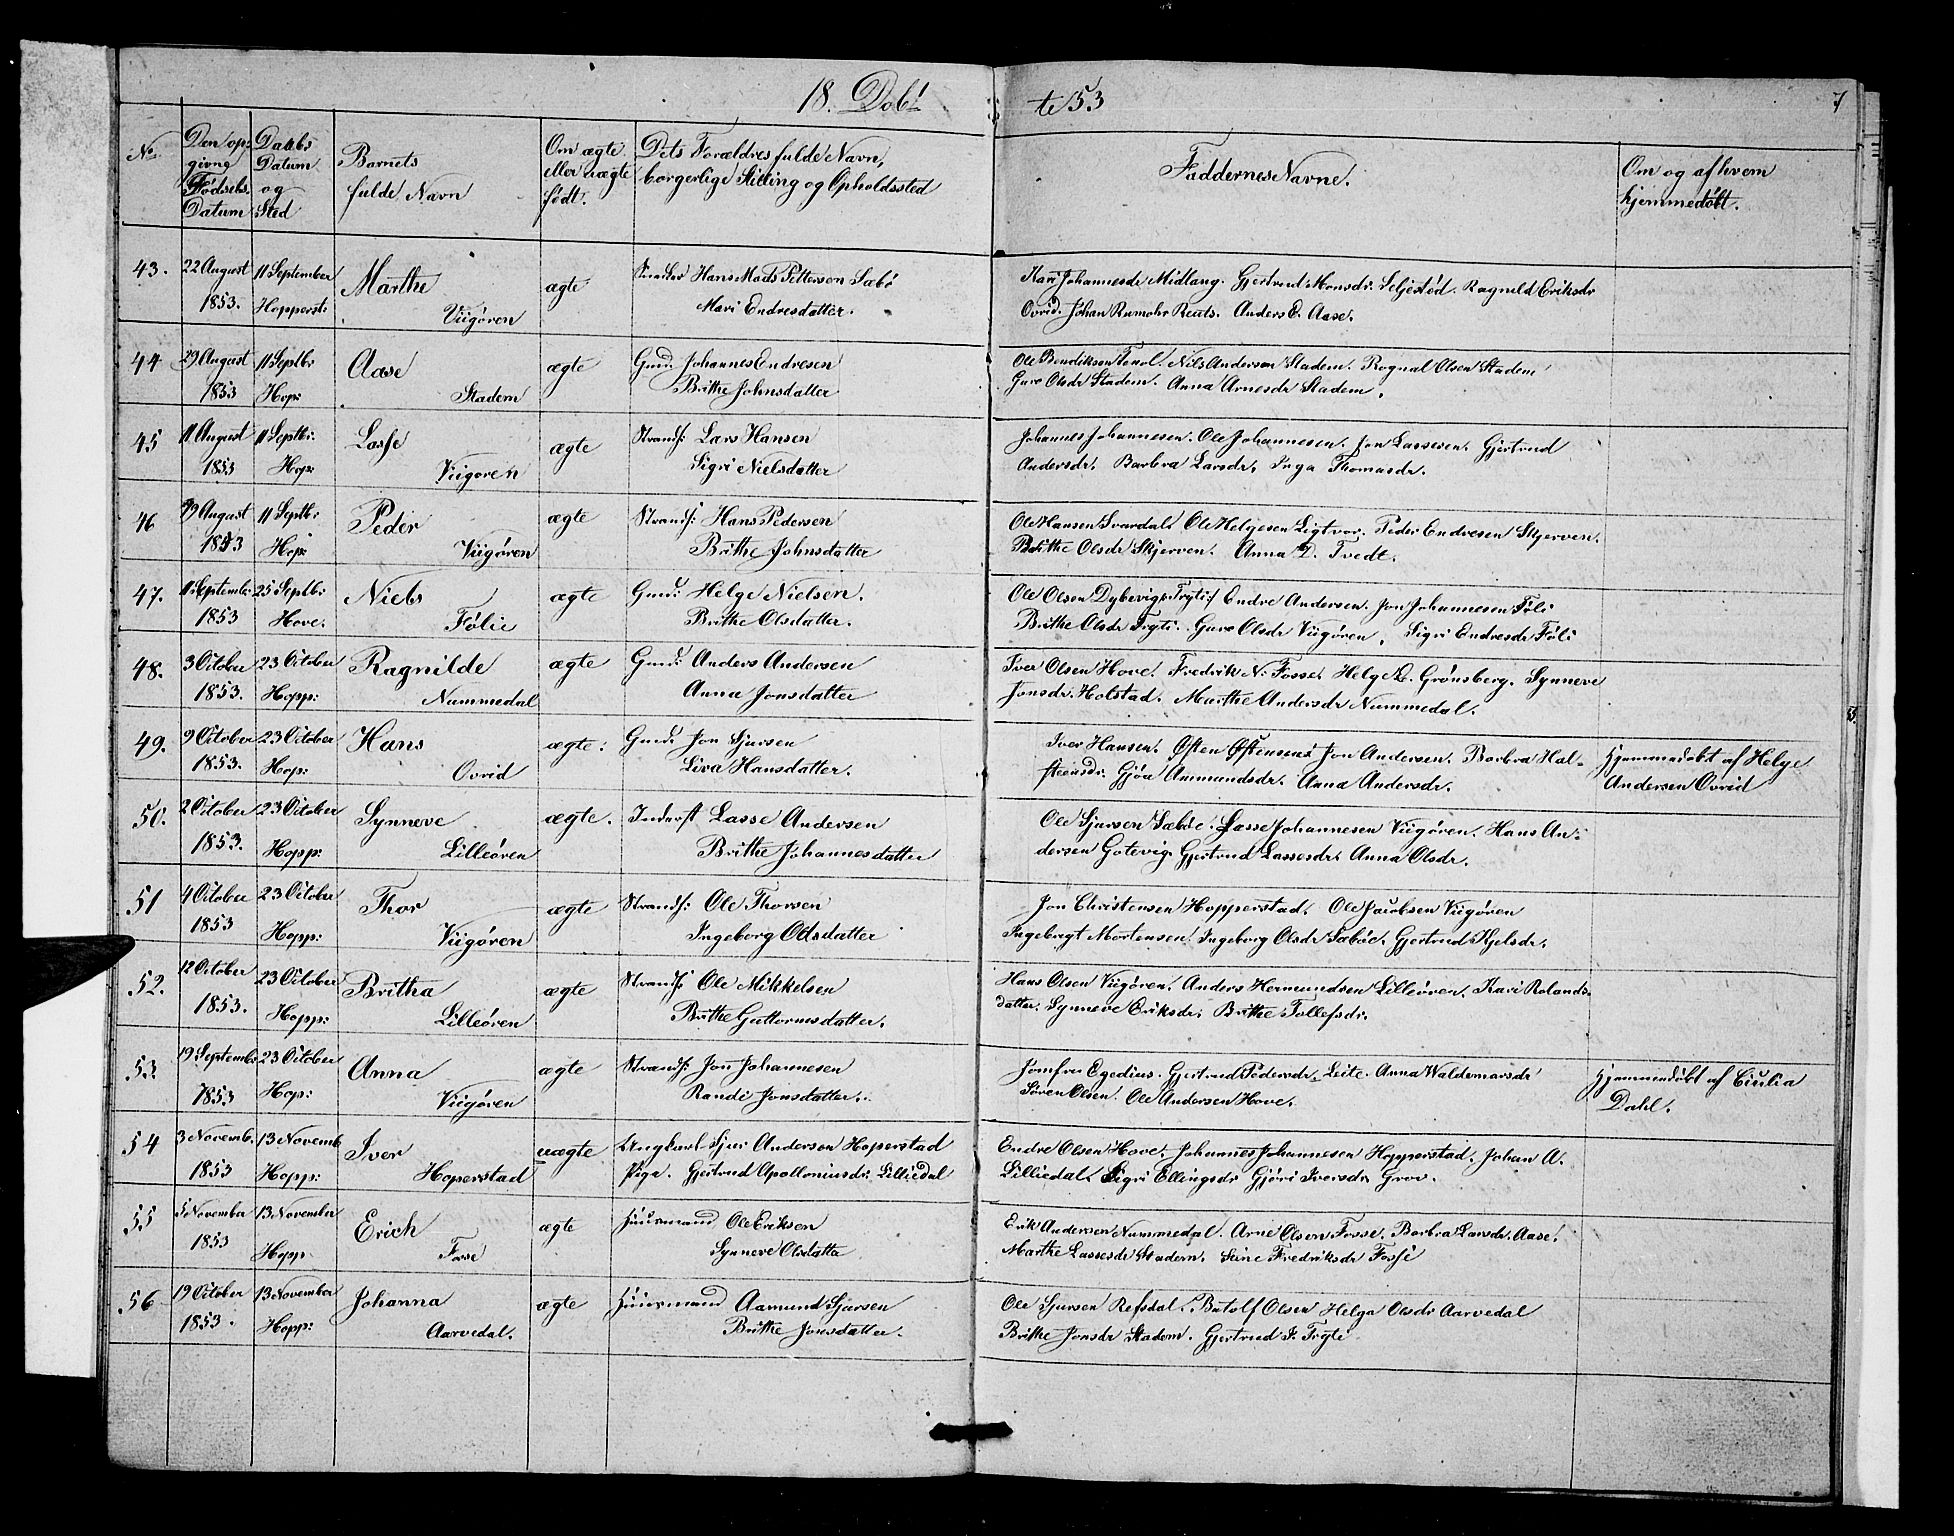 18. Døbte 53
7
No
Den opgivne Fødsels Datum
Daabs Datum og Sted
Barnets fulde Navn
Om ægte eller uægte født.
Dets Forældres fulde Navn, borgerlige Stilling og Opholdssted
Faddernes Navne.
Om og af hvem hjemmedøbt.
43. 22 August 1853. 11 September Hopperst: Marthe Viigøren ægte Hans Mads Pettersen Sæbø
Mari Endresdatter.
Kari Johannesdr Midlang. Gjertrud Monsdr. Seljestød. Ragnild Eriksdr
Ovrid. Johan Rumohr Reuts. Anders E. Aase.
44 29 August 1853 11 Septbr Hop: Aase Stadem ægte Gmd: Johannes Endresen
Brithe Johnsdatter
Ole Bendiksen Tenol. Nils Andersen Stadem. Rognal Olsen Stadem
Guro Olsdr Stadem. Anna Arnesdr Stadem.
45 11 August 1853 11 Septbr. Hop: Lasse Viigøren ægte Strands: Lars Hansen
Sigri Nielsdatter
Johannes Johannesen. Ole Johannesen. Jon Lassesen. Gjertrud
Andersdr. Barbra Larsdr. Inga Thomasdr.
46 29 August 1853 11 Septbr: Hop: Peder Viigøren ægte Strands: Hans Pedersen
Brithe Johnsdatter
Ole Hansen Svardal. Ole Helgesen Ligtvor. Peder Endresen Skjerven.
Brithe Olsdr Skjerven. Anna D. Tvedt.
47. 11 Septembr: 1853 25 Septbr: Hove. Niels Følie ægte Gmd: Helge Nielsen.
Brithe Olsdatter.
Ole Olsen Dybevig. Endre Andersen. Jon Johannesen Føli
Brithe Olsdr Tryti. Guro Olsdr Viigøren. Sigri Endresdr Føli
48. 3 October 1853. 23 October Hopp: Ragnilde Nummedal ægte Gmd: Anders Andersen
Anna Jonsdatter
Iver Olsen Hove. Fredrik N. Fosse. Helge E. Grønsberg. Synneve
Jonsdr. Holstad. Marthe Andersdr Nummedal.
49. 9 October 1853. 23 October Hop: Hans Ovrid ægte. Gmd: Jon Sjursen
Liva Hansdatter.
Iver Hansen. Østen Østensens Jon Andersen. Barbra Hal-
steensdr. Gjøa Aamundsdr. Anna Andersdr.
hjemmedøbt af Helge
Andersen Ovrid
50. 2 October 1853. 23 October Hopp: Synneve Lilleøren ægte. Inderst Lasse Andersen
Brithe Johannesdatter
Ole Sjursen Sæbøe. Lasse Johannesen Viigøren. Hans An-
dersen Gotevig. Gjertrud Lassesdr. Anna Olsdr.
51 4 October 1853 23 October Hopp: Thor Viigøren ægte Strands: Ole Thorsen
Ingeborg Olsdatter
Jon Christensen Hopperstad. Ole Jacobsen Viigøren
Ingebrigt Mortensen. Ingeborg Olsdr Sæbøe. Gjertrud Kjelsdr.
52. 12 October 1853. 23 October Hopp: Britha Lilleøren ægte Strands: Ole Mikkelsen
Brithe Guttormsdatter.
Hans Olsen Viigøren. Anders Hermundsen Lilleøren. Kari Rolands-
datter. Synneve Eriksdr. Brithe Tollefsdr.
53. 19 Septembr 1853 23 October Hop: Anna Viigøren ægte Strands: Jon Johannesen
Randi Jonsdatter.
Jomfru Egedius. Gjertrud Pedersdr. Leite. Anna Waldemarsdr
Søren Olsen. Ole Andersen Hove.
hjemmedøbt af Ciculia
Dahl.
54 3 Novemb. 1853 13 Novemb. Hopp: Iver Hoperstad uægte Ungkarl Sjur Andersen Hoperstad
Pige. Gjertrud Apolloniusdr. Lilliedal
Endre Olsen Hove. Johannes Johannesen Hopperstad. Johan A.
Lilliedal. Sigri Ellingsdr Gjøri Iversdr Grov.
55 5 November 1853 13 November Hopp. Erich Fosse ægte Huusmand Ole Eriksen
Synneve Olsdatter
Erik Andersen Nummedal. Arne Olsen Fosse. Barbra Larsdr. Aase.
Marthe Lassesdr Stadem. Seine Fredriksdr Fosse
56 19 October 1853. 13 November Hopp: Johanna Aarvedal. ægte Huusmand Aamund Sjursen
Brithe Jonsdatter.
Ole Sjursen Refsdal. Botolf Olsen Helga Olsdr Aarvedal
Brithe Jonsdr Stadem. Gjertrud I. Tryte